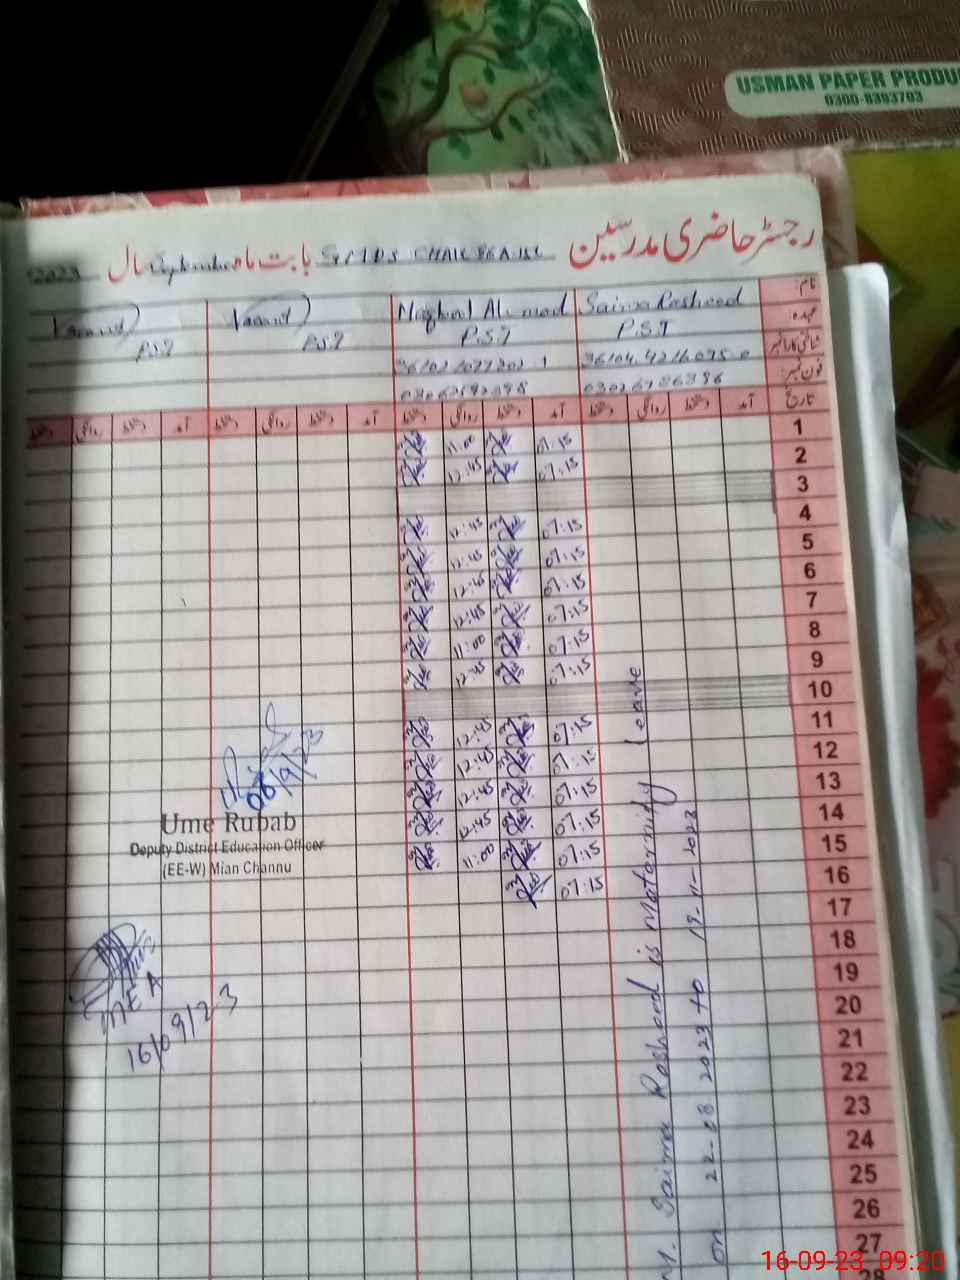 USMAN PAPER PRODU
0300-8393703
رجسٹر حاضری مدرسین
بابت ماہ September سال 2023
نام:
عہدہ:
شناختی کارڈ نمبر
فون نمبر:
Saima Rasheed
P.S.T
03026786386
Ahmad
P.S.T
Vacant
P.S.T
Vacant
P.S.T
تاریخ آمد دستخط روانگی دستخط آمد دستخط روانگی دستخط آمد دستخط روانگی دستخط آمد دستخط روانگی دستخط
1 07:15 11:00
2 07:15 12:45
3
4 07:15 12:45
5 07:15 12:45
6 07:15 12:45
7 07:15 12:45
8 07:15 11:00
9 07:15 12:45
10
11 07:15 12:45
12 07:15 12:45
13 07:15 12:45
14 07:15 12:45
15 07:15 11:00
16 07:15
17
18
19
20
21
22
23
24
25
26
27
28
Saima Rasheed is Maternity Leave
on 22-08 2023 to 18-11-2023
08/9/23
Ume Rubab
Deputy District Education Officer
(EE-W) Mian Channu
MEA
16/09/23
16-09-23 09:20